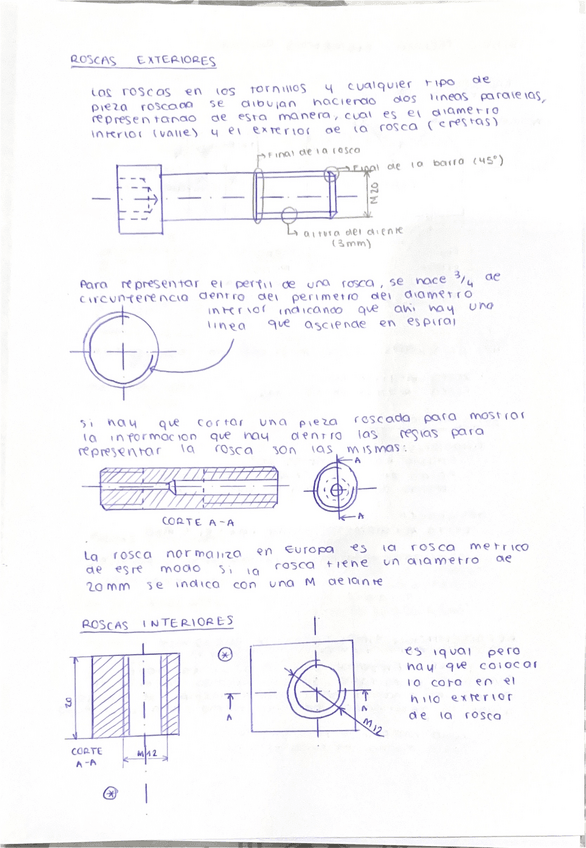 ROSCAS EXTERIORES
Las roscas en los tornillos y cualquier tipo de
pieza roscada se dibujan haciendo dos lineas paralelas,
representando de esta manera, cual es el diametro
interior (valle) y el exterior de la rosca (crestas)
Final de la rosca
Final de la barra (45º)
M20
altura del diente
(3mm)
Para representar el perfil de una rosca, se hace 3/4 de
circunferencia dentro del perimetro del diametro
interior indicando que ahi hay una
linea que asciende en espiral
Si hay que cortar una pieza roscada para mostrar
la informacion que hay dentro las reglas para
representar la rosca son las mismas:
A
A
CORTE A-A
La rosca normaliza en Europa es la rosca metrica
de este modo si la rosca tiene un diametro de
20mm se indica con una M delante
ROSCAS INTERIORES
es igual pero
hay que colocar
la cota en el
hilo exterior
de la rosca
A
A
M12
CORTE
A-A
M12